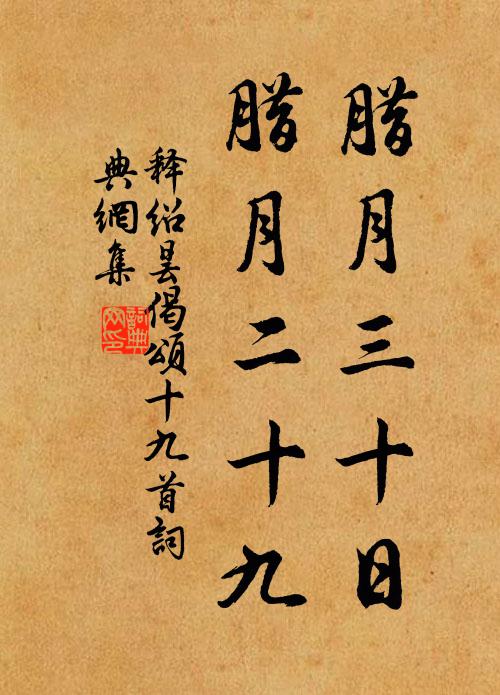 腊月三十日
腊月二十九
释绍昙偈颂十九首詞
典網集
詞典網印